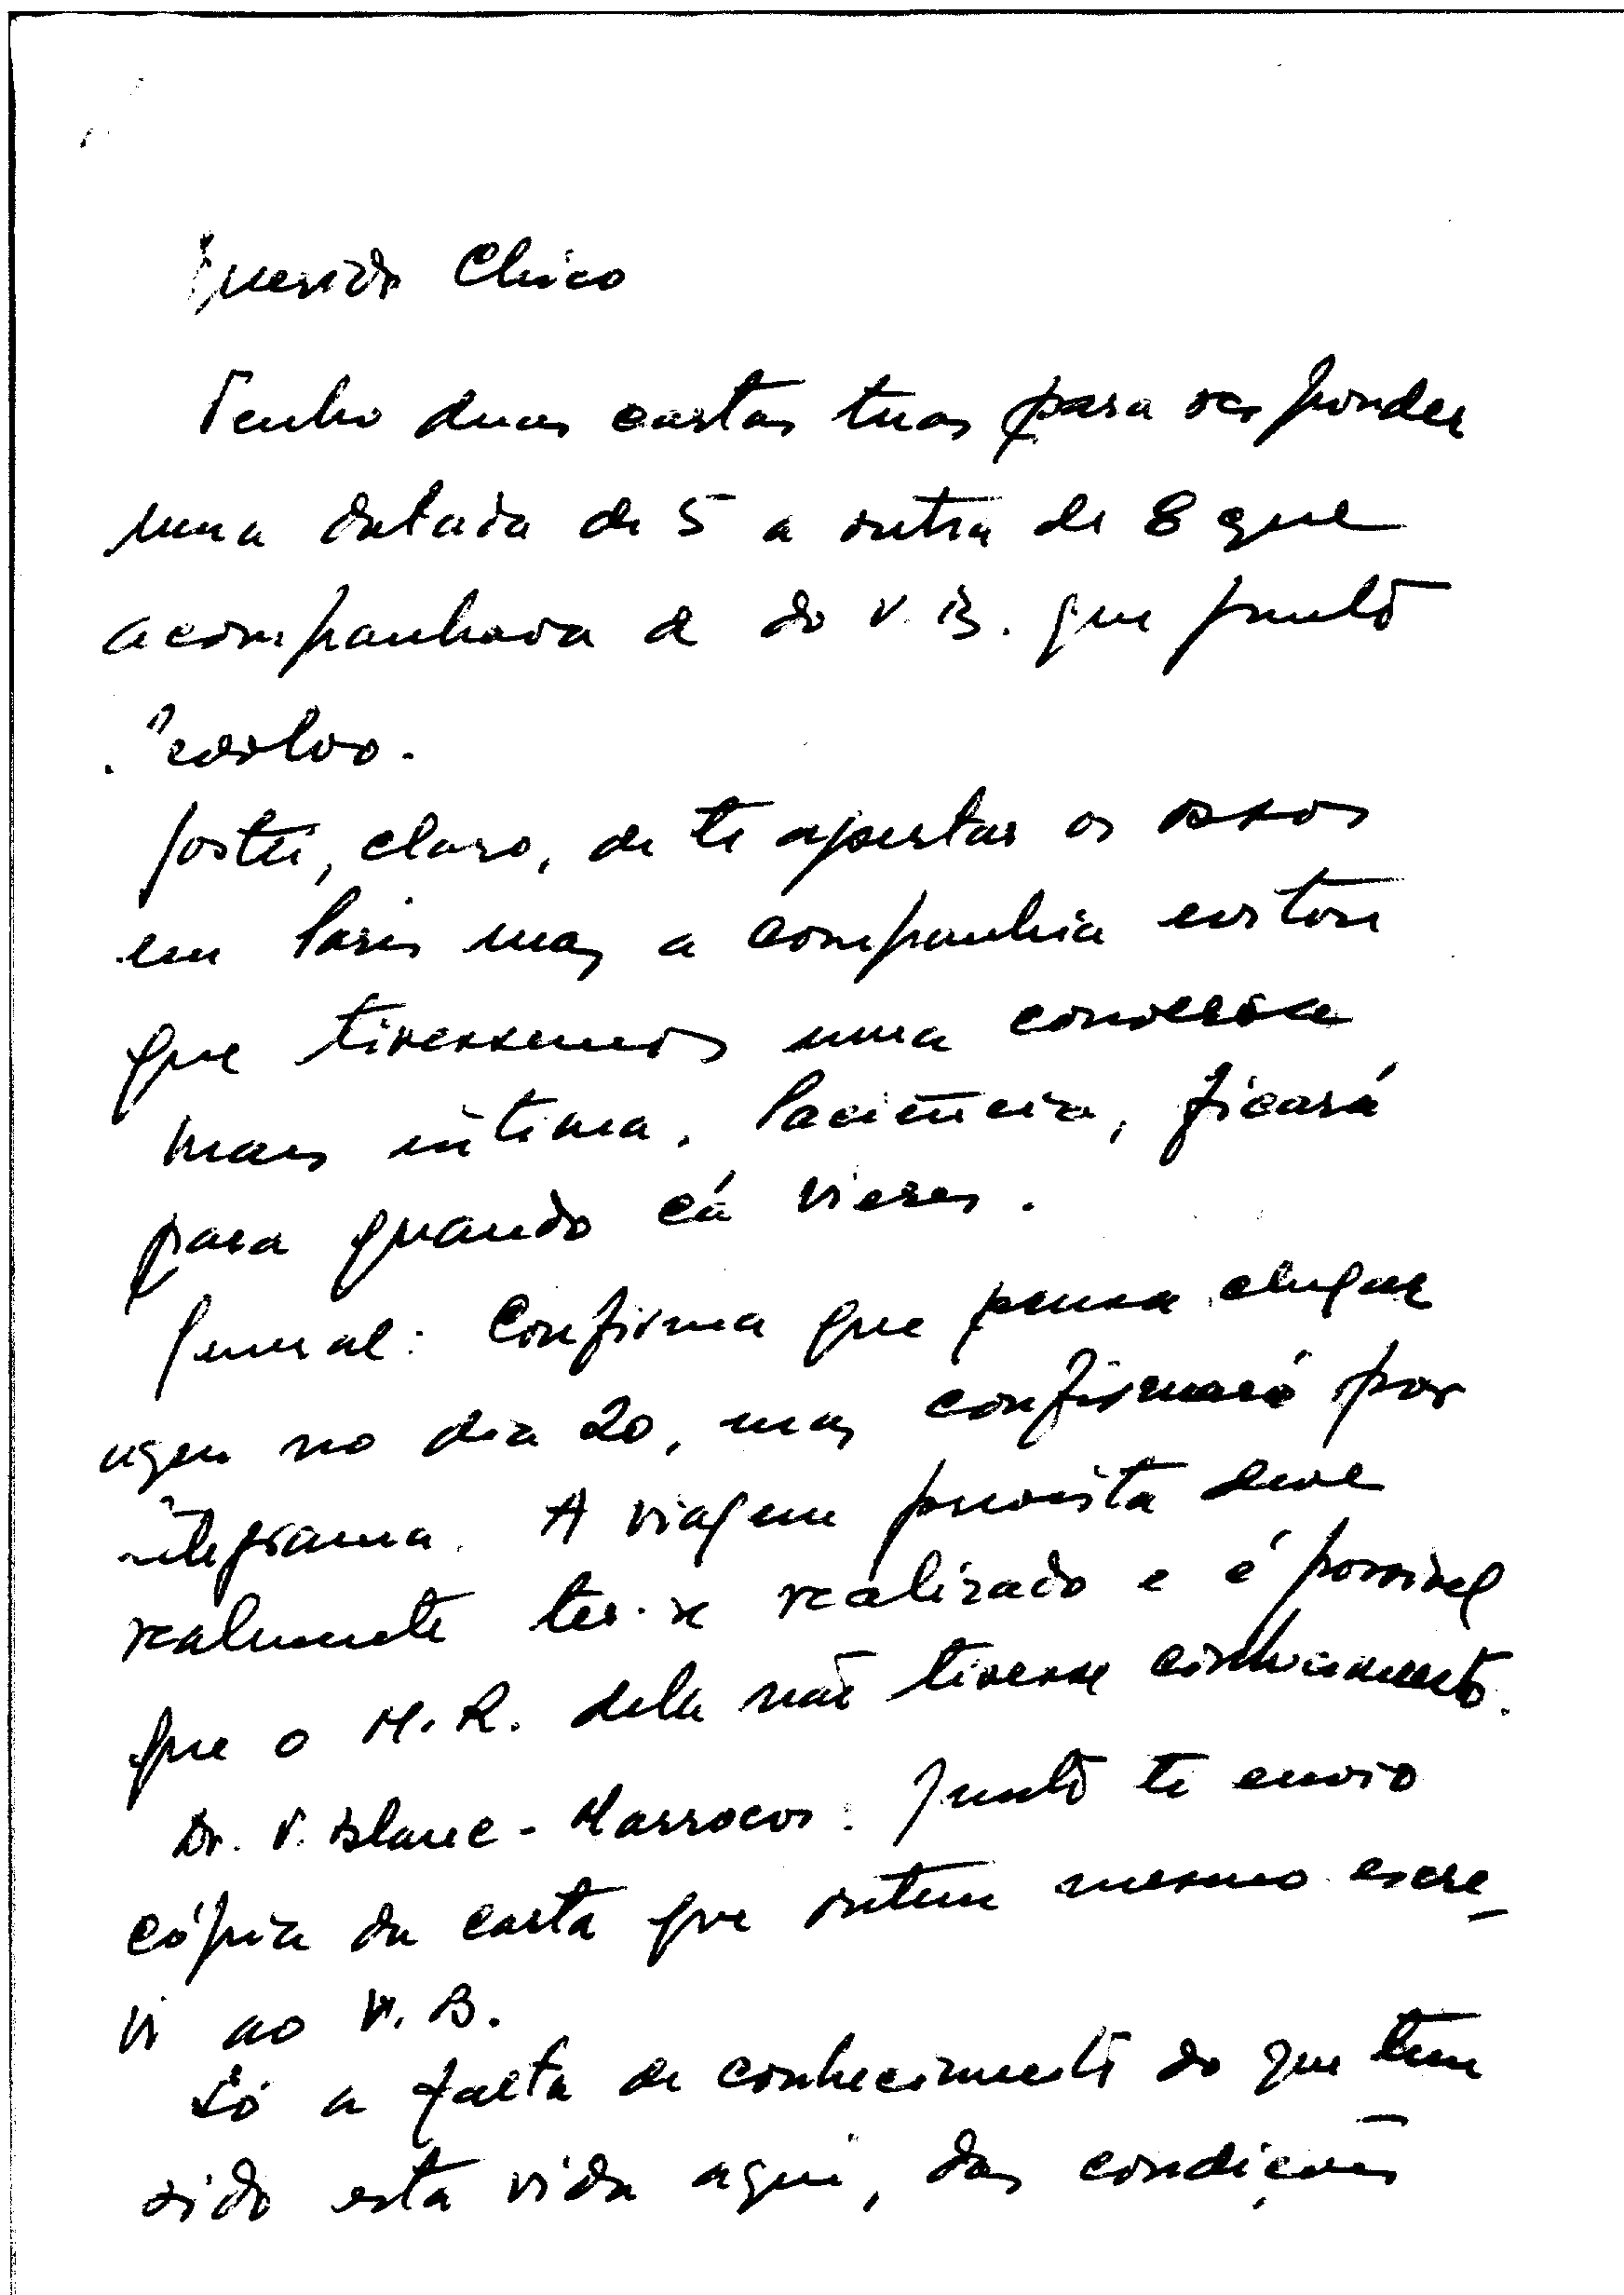 Querido Chico
Tenho duas cartas tuas para responder
uma datada de 5 a outra de 8 que
acompanhava a do V.B. que junto
devolvo.
Gostei, claro, de te apertar os ossos
em Paris mas a companhia evitou
que tivessemos uma conversa
mais intima. Paciência, ficará
para quando cá vieres.
General: Confirma que pensa chegar
aqui no dia 20, mas confirmará por
telegrama. A viagem prevista deve
realmente ter-se realizado e é possivel
que o M.R. dela não tivesse conhecimento.
Dr. V. Blanc - Marrocos: Junto te envio
cópia da carta que ontem mesmo escre-
vi ao V.B.
Só a falta de conhecimento do que tem
sido esta vida aqui, das condições